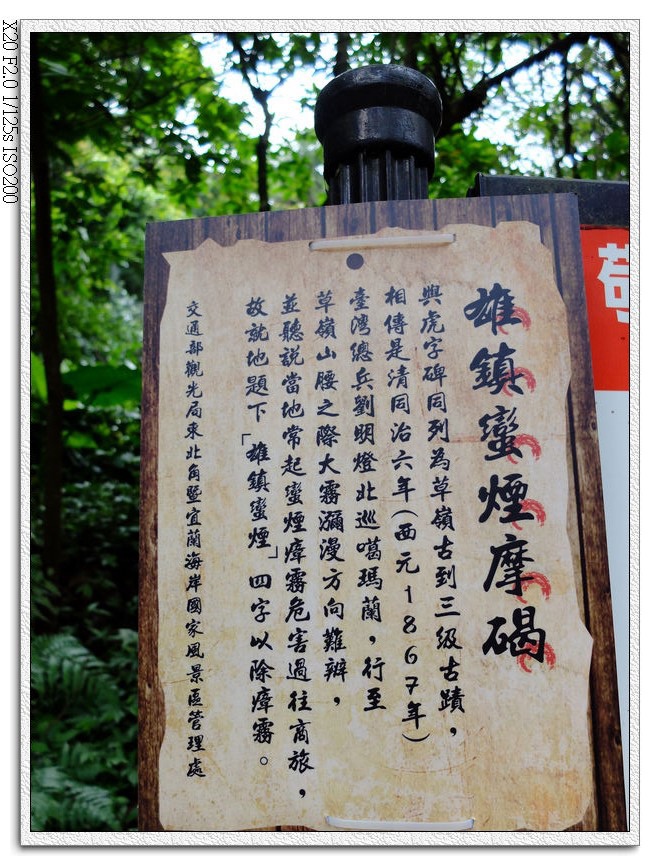 雄鎮蠻煙摩碣
與虎字碑同列為草嶺古到三級古蹟，
相傳是清同治六年(西元1867年)
臺灣總兵劉明燈北巡噶瑪蘭，行至
草嶺山腰之際大霧瀰漫方向難辨，
並聽說當地常起蠻煙瘴霧危害過往商旅，
故就地題下「雄鎮蠻煙」四字以除瘴霧。
交通部觀光局東北角暨宜蘭海岸國家風景區管理處
X20 F2.0 1/125s ISO200